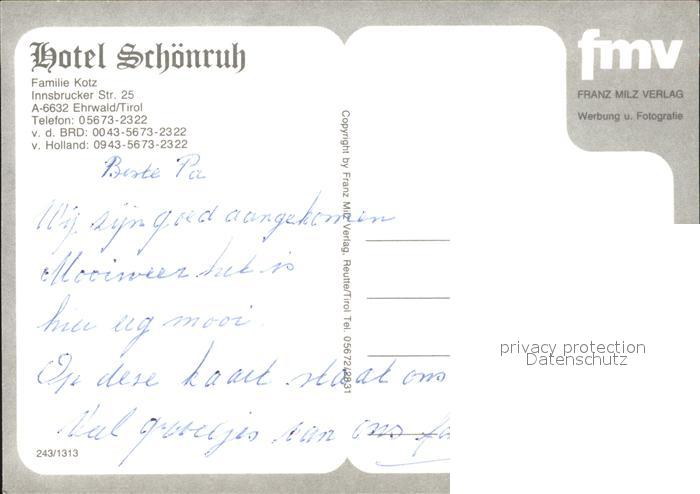 Hotel Schönruh
Familie Kotz
Innsbrucker Str. 25
A-6632 Ehrwald/Tirol
Telefon: 05673-2322
v. d. BRD: 0043-5673-2322
v. Holland: 0943-5673-2322
fmv
FRANZ MILZ VERLAG
Werbung u. Fotografie
Copyright by Franz Milz Verlag, Reutte/Tirol Tel. 05672/2831
Beste Pa
Wij zijn goed aangekomen
Mooi weer het is
hier erg mooi.
Op dese kaart staat ons
Veel groetjes van ons
243/1313
privacy protection
Datenschutz